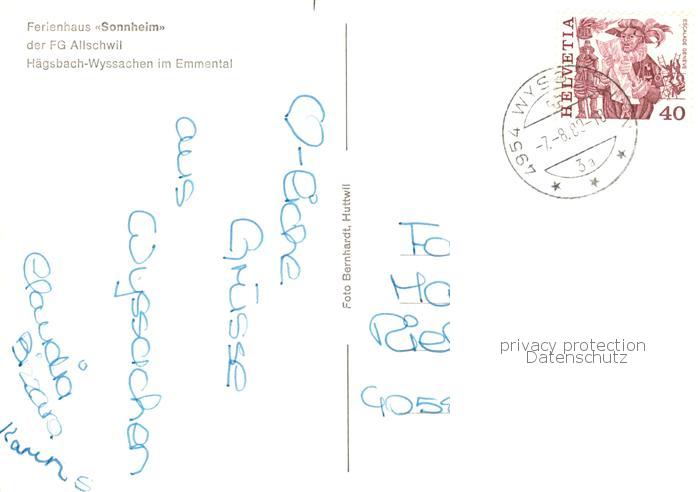 Ferienhaus «Sonnheim»
der FG Allschwil
Hägsbach-Wyssachen im Emmental
♡-liche
Grüsse
aus
Wyssachen
Claudia
Karin
Foto Bernhardt, Huttwil
HELVETIA
ESCALADE GENÈVE
40
4954 WYS
-7.-8.8
3a
privacy protection
Datenschutz